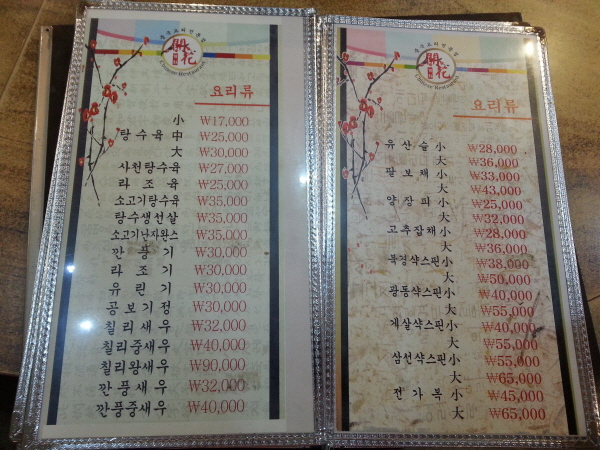 開花
Chinese Restaurant
요리류
小 ₩17,000
탕수육 中 ₩25,000
大 ₩30,000
사천탕수육 ₩27,000
라조육 ₩25,000
소고기탕수육 ₩35,000
탕수생선살 ₩35,000
소고기난자완스 ₩35,000
깐풍기 ₩30,000
라조기 ₩30,000
유린기 ₩30,000
공보기정 ₩30,000
칠리새우 ₩32,000
칠리중새우 ₩40,000
칠리왕새우 ₩90,000
깐풍새우 ₩32,000
깐풍중새우 ₩40,000
開花
Chinese Restaurant
요리류
유산슬 小 ₩28,000
大 ₩36,000
팔보채 小 ₩33,000
大 ₩43,000
양장피 小 ₩25,000
大 ₩32,000
고추잡채 小 ₩28,000
大 ₩36,000
북경샥스핀 小 ₩38,000
大 ₩50,000
광동샥스핀 小 ₩40,000
大 ₩55,000
게살샥스핀 小 ₩40,000
大 ₩55,000
삼선샥스핀 小 ₩55,000
大 ₩65,000
전가복 小 ₩45,000
大 ₩65,000